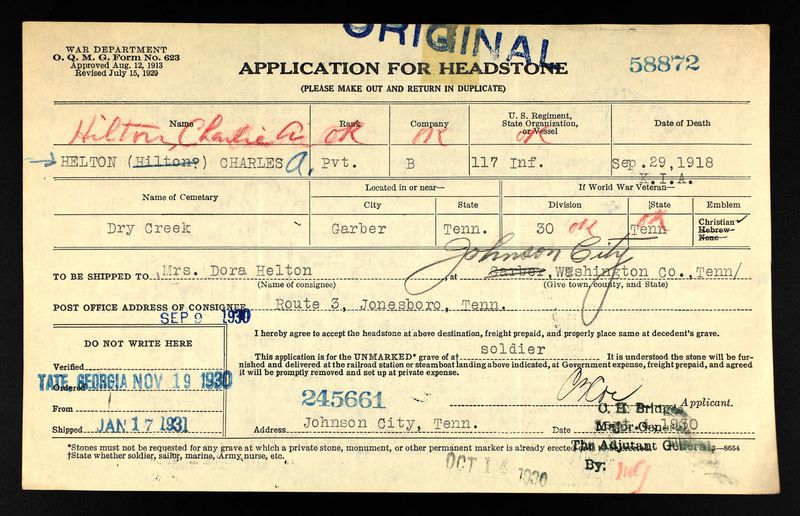 ORIGINAL
WAR DEPARTMENT
O. Q. M. G. Form No. 623
Approved Aug. 12, 1913
Revised July 15, 1929
APPLICATION FOR HEADSTONE
(PLEASE MAKE OUT AND RETURN IN DUPLICATE)
58872
Name Rank Company U. S. Regiment, State Organization, or Vessel Date of Death
Hilton, Charlie A. OK OK OK
HELTON (Hilton?) CHARLES A. Pvt. B 117 Inf. Sep. 29, 1918
K.I.A.
Name of Cemetary Located in or near— If World War Veteran—
City State Division State Emblem
Dry Creek Garber Tenn. 30 OK Tenn OK Christian ✓
Hebrew
None
Johnson City
TO BE SHIPPED TO Mrs. Dora Helton at Garber, Washington Co., Tenn/
(Name of consignee) (Give town, county, and State)
POST OFFICE ADDRESS OF CONSIGNEE Route 3, Jonesboro, Tenn.
SEP 9 1930
DO NOT WRITE HERE
Verified
Ordered
TATE, GEORGIA NOV 19 1930
From
Shipped JAN 17 1931
I hereby agree to accept the headstone at above destination, freight prepaid, and properly place same at decedent's grave.
This application is for the UNMARKED* grave of a† soldier It is understood the stone will be fur-
nished and delivered at the railroad station or steamboat landing above indicated, at Government expense, freight prepaid, and agreed
it will be promptly removed and set up at private expense.
245661
Applicant.
Address Johnson City, Tenn. Date 1930
O. H. Bridges
Major General
The Adjutant General
By:
*Stones must not be requested for any grave at which a private stone, monument, or other permanent marker is already erected
3—8654
†State whether soldier, sailor, marine, Army nurse, etc.
OCT 14 1930